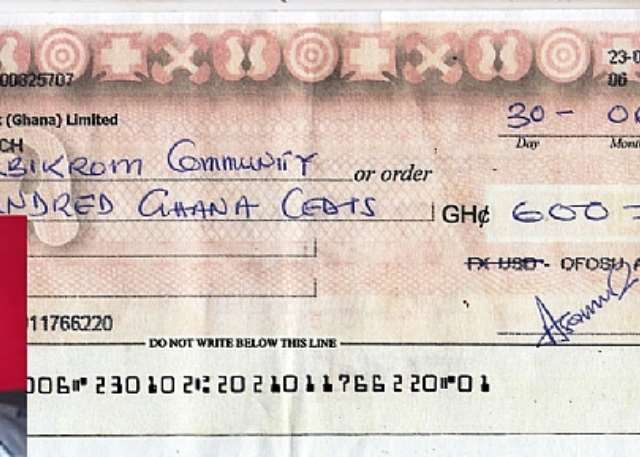 23-0
00825707
06
(Ghana) Limited
30 - 06
CH
Day Month
BIKROM COMMUNITY or order
NDRED GHANA CEDIS GH¢ 600 -
FX USD - OFOSU A
11766220
DO NOT WRITE BELOW THIS LINE
006⑈ 230102⑆ 2021011766220⑈01